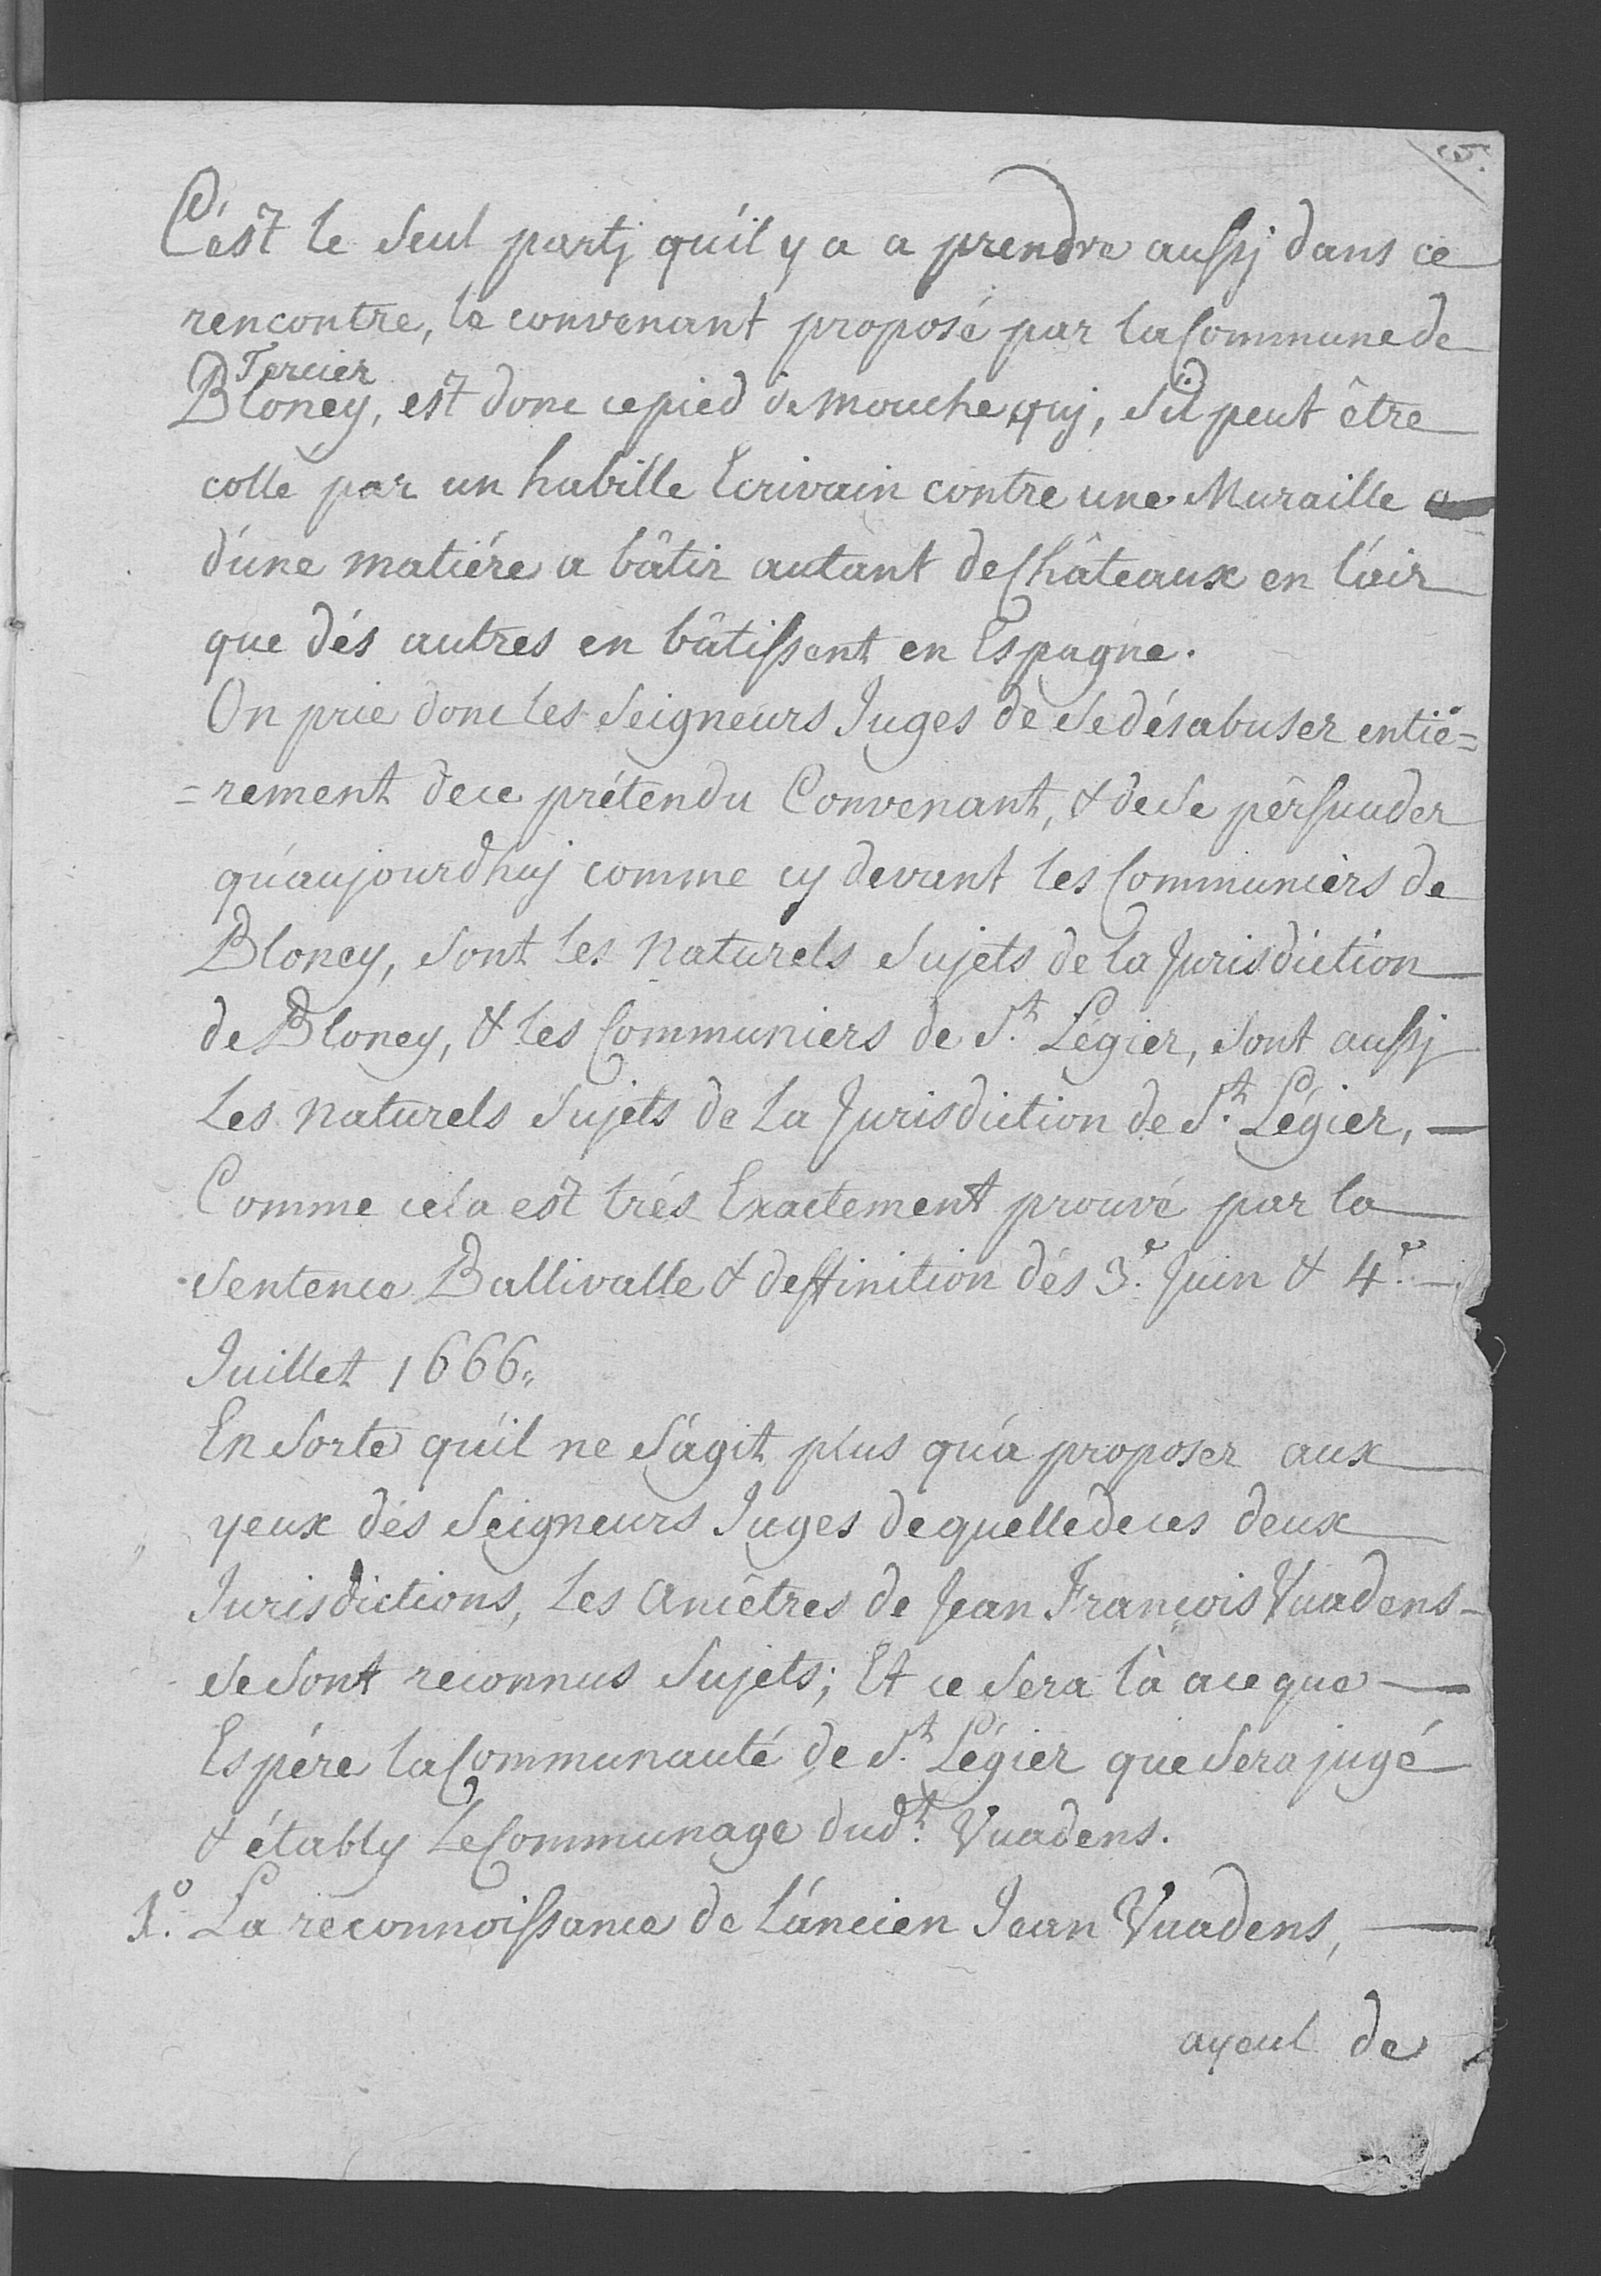 5.
C'est le Seul partj qu'il y a a prendre aussj dans ce
rencontre, le convenant proposé par la Commune de
Tercier
Bloney, est donc ce pied de mouche quj, S'il peut être
collé par un habille Ecrivain contre une Muraille
d'une matiére a bâtir autant de Châteaux en l'air
que dés autres en bâtissent en Espagne.
On prie donc les Seigneurs Juges de Se désabuser entié=
=rement de ce prétendu Convenant, & de Se pérsuader
qu'aujourdhuj comme cy devant les Communiers de
Bloney, Sont les Naturels Sujets de la Jurisdiction
de Bloney, & les Communiers de St. Légier, Sont aussj
Les Naturels Sujets de La Jurisdiction de St. Légier,
Comme cela est trés Exactement prouvé par la
Sentence Ballivalle & deffinition dés 3e. Juin & 4e.
Juillet 1666.
En Sorte qu'il ne S'agit plus qu'a proposer aux
yeux dés Seigneurs Juges de quelle de ces deux
Jurisdictions, Les Ancêtres de Jean François Vuadens
Se Sont reconnus Sujets; Et ce Sera là a ce que
Espére la Communauté de St. Légier que Sera jugé
& étably Le Communage dudt. Vuadens.
1o. La reconnoissance de L'áncien Jean Vuadens,
ayeul de